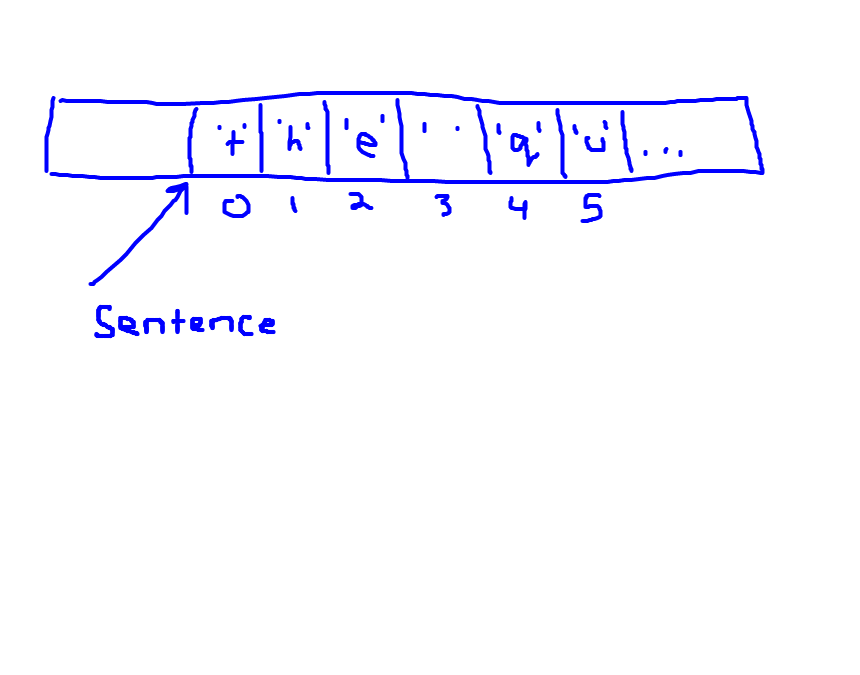 't' 'h' 'e' ' ' 'q' 'u' ...
0 1 2 3 4 5
Sentence